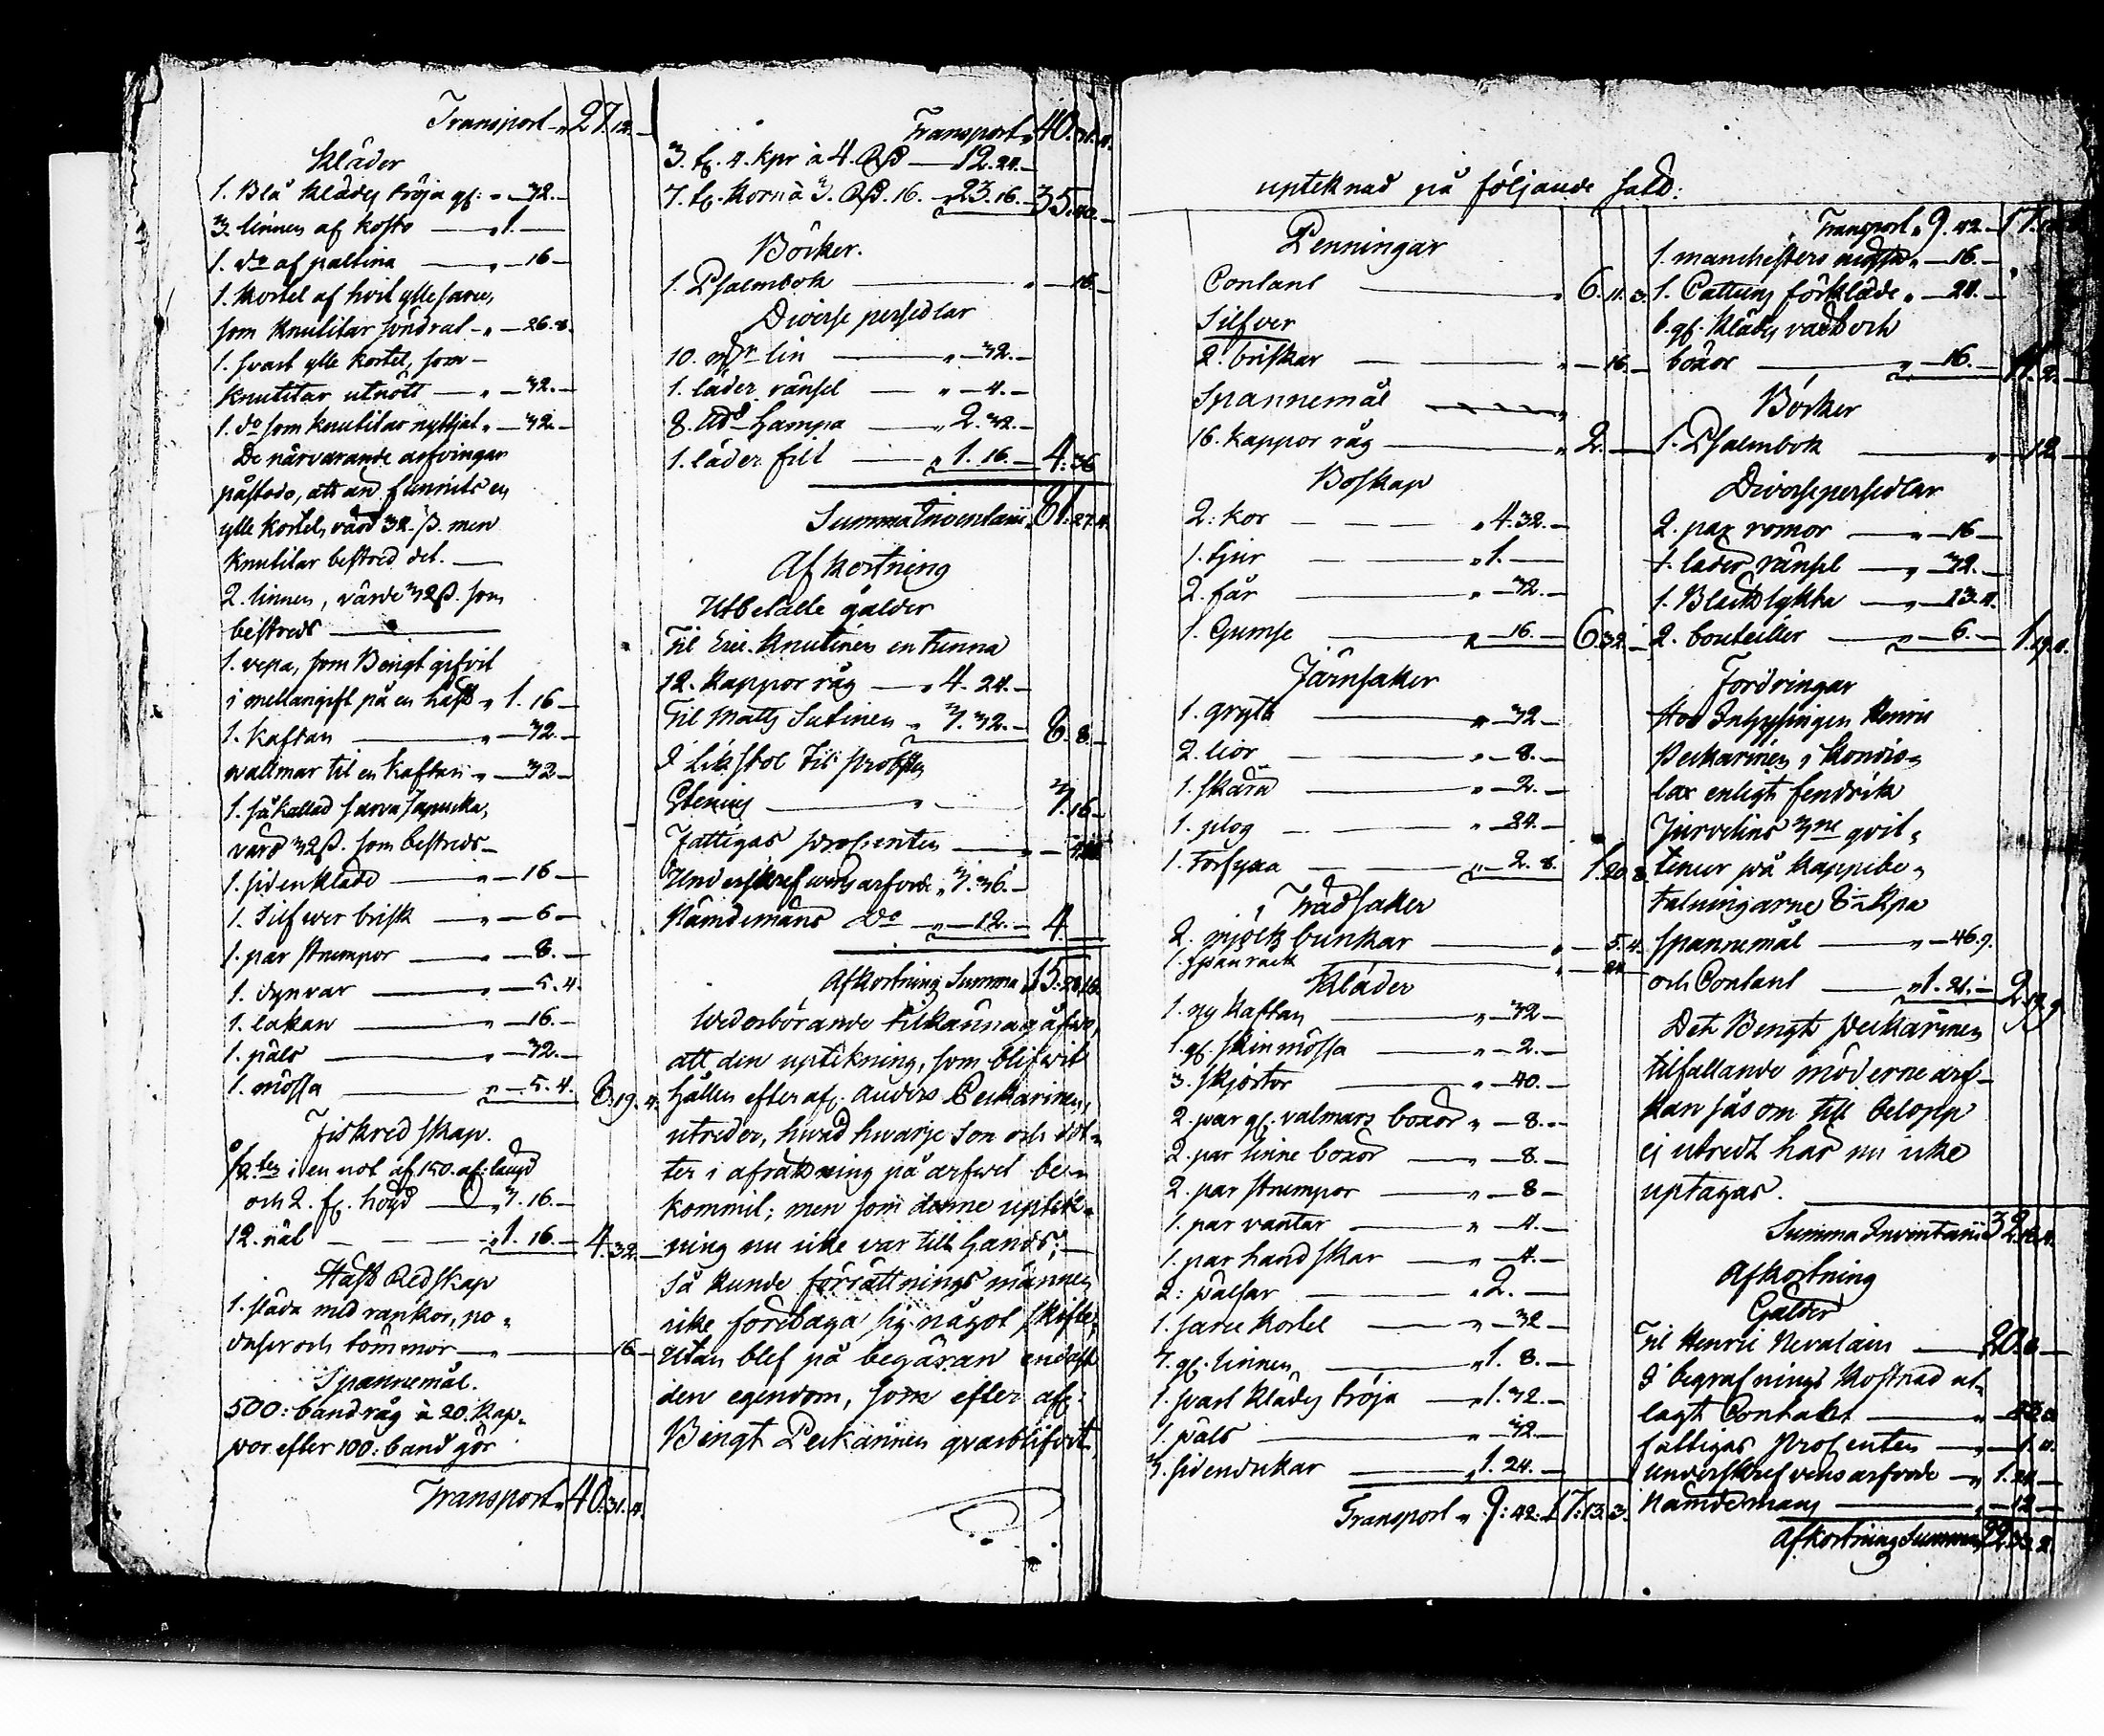 Transport „ 27.12.
Kläder
1. Blå Klädes tröja gl: „ — 32. —
3. linnen af kosto — „ 1. —
1. do af paltina — „ — 16 —
1. Kortel af hvit ylle sarse,
som Knutitar söndrat — „ — 26.8.
1. svart ylle kortel, som —
Knutitar utnött — „ — 32. —
1. do som Knutitar nyttjat „ — 32. —
De närvarande arfvingar
påstodo, att än funnits en
ylle kortel, värd 32. ß. men
Knutitar bestred det. —
2. linnen, värde 32 ß. som
bestreds —
1. vepa, som Bengt gifvit
i mellangift på en häst „ 1. 16 —
1. Kaftan — „ — 32. —
wallmar til en Kaftan „ — 32 —
1. så kallad
värd 32 ß. som bestreds —
1. sidenkläde — „ — 16 —
1. Silfwer brisk — „ — 6 —
1. par strumpor — „ — 8. —
1. dynvar — „ — 5. 4.
1. lakan — „ — 16. —
1. päls — „ — 32. —
1. mössa — „ — 5. 4. 8. 19. 4.
Fiskredskap.
i en not af 150. af: längd
och 2. f. höjd — „ 3. 16. —
12. nät — — — „ 1. 16. — 4. 32. —
Häst Redskap
1. släda med rankor,
och tömmor — „ — 16 —
Spannemål.
500: band råg à 20. kap-
por efter 100: band gör
Transport „ 40. 31. 4.
Transport „ 40. 31. 4.
3. t. 4. kpr à 4. Rd — 12. 24. —
7. t. Korn à 3. Rd. 16. — „ 23. 16. — 35. 40. —
Böcker.
1. Psalmbok — „ — 16. —
Diverse persedlar
10. lin — „ — 32. —
1. läder ränsel — „ — 4. —
8. Hampa — „ 2. 32. —
1. läder fild — „ 1. 16. — 4. 36
Summa Inventarii „ 81. 27. 4.
Afkortning
Utbetalte gälder
Til Eric Knutinen en tunna
12. kappor råg — „ 4. 24. —
Til Matts Sutinen „ 3. 32. — 8. 8. —
I Likstol til Prosten
— „ — 3. 16 —
Fattigas procenten — „ —
Underskrefwens arfvode „ 3. 36. —
Nämdemäns do — „ — 12. — 4. —
Afkortning Summa 15.
Wederbörande tilkännagåfwo,
att den uptekning, som blifwit
hållen efter afl. Anders Peckarinen,
utreder, hwad hwarje Son och dot-
ter i afräkning på arfwet be-
kommit; men som denne uptek-
ning nu icke var till hands; —
Så kunde förrättnings männen
icke företaga sig något skifte,
utan blef på begäran endast
den egendom, som efter afl:
Bengt Peckarinen qvarblifwit,
upteknad på följande sätt:
Penningar
Contant — „ 6. 11. 3.
Silfver
2. briskar — — „ — 16. —
Spannemål
16. kappor råg — „ 2. —
Boskap
2: kor — — — „ 4. 32. —
1. tjur — — „ 1. —
2. får — — „ — 32. —
1. Gumse — „ — 16. — 6. 32. —
Järnsaker
1. gryta — „ — 32 —
2. liar — „ — 8. —
1. skära — „ — 2. —
1. plog — — „ — 24. —
1. Torfyxa — „ — 2. 8. 1. 20. 8.
Trädsaker
2. mjölks bunkar — „ — 5. 4.
1. spanrack — „ — 24.
Kläder
1. ny Kaftan — „ — 32 —
1. gl. skinmössa — „ — 2. —
3. skjortor — „ — 40. —
2. par gl. valmars boxor „ — 8. —
2. par linne boxor — „ — 8. —
2. par strumpor — „ — 8 —
1. par vantar — „ — 4. —
1. par handskar — „ — 4. —
2: pälsar — „ 2. —
1. sarse kortel — „ — 32 —
7. gl. linnen — „ 1. 8. —
1. svart klädes tröja — „ 1. 32. —
1. päls — „ — 32 —
3. sidendukar — „ 1. 24. —
Transport „ 9: 42. 17: 13. 3.
Transport „ 9. 42. — 17. 13.
1. manchesters mössa „ — 16. —
1. Cattuns förkläde „ — 24. —
1. gl. Klädes väst och
boxor — „ — 16. — 11. 2. —
Böcker
1. Psalmbok — „ — 12 —
Diverse persedlar
2. par romor — „ — 16 —
1. läder ränsel — „ — 32. —
1. Bläcklykta — „ — 13. 4.
2. bouteiller — „ — 6. — 1. 19. 4.
Fordringar
Hos Inhysingen Henric
Peckarinen i
enligt fendrik
3ne qvit-
tencer på kappibe-
talningarne
spannemål — „ — 46. 9.
och Contant — „ 1. 21. — 2. 19. 9
Det Bengt Peckarinen
tilfallande möderne arf —
kan såsom till belopp
ej utredt här nu icke
uptagas.
Summa Inventarii 32.
Afkortning
Gälder
Til Henric Nevalain — 20. —
I begrafnings kostnad ut-
lagt Contant — „ —
fattigas Procenten — „ —
Underskrefvens arfvode — „ 1. 24 —
Nämdemans — „ — 12 —
Afkortning Summa 22. 33. 2.